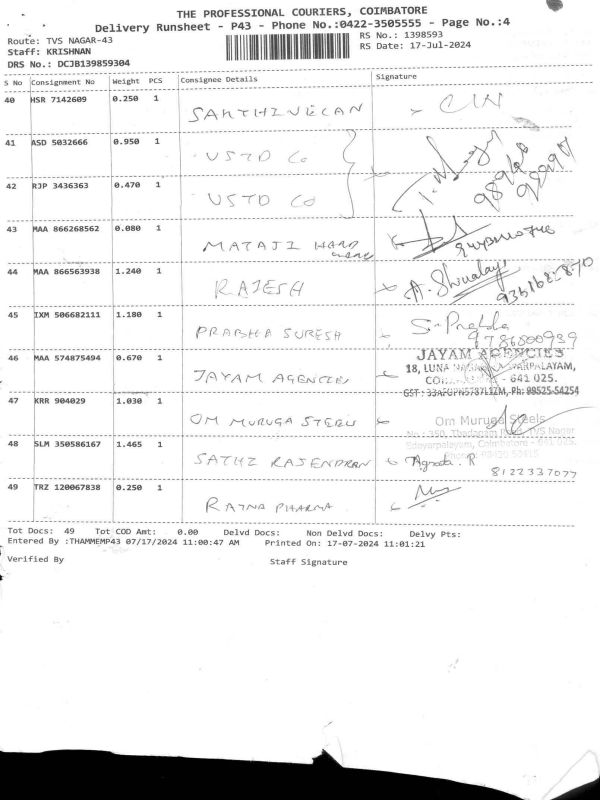 THE PROFESSIONAL COURIERS, COIMBATORE
Delivery Runsheet - P43 - Phone No.:0422-3505555 - Page No.:4
Route: TVS NAGAR-43
RS No.: 1398593
Staff: KRISHNAN
RS Date: 17-Jul-2024
DRS No.: DCJB139859304
S No Consignment No Weight PCS Consignee Details Signature
40 HSR 7142609 0.250 1 SAKTHIVELAN
41 ASD 5032666 0.950 1 USTD Co
42 RJP 3436363 0.470 1 USTD Co
43 MAA 866268562 0.080 1 MATAJI HARD WARE
44 MAA 866563938 1.240 1 RAJESH
45 IXM 506682111 1.180 1 PRABHA SURESH
9786800939
46 MAA 574875494 0.670 1 JAYAM AGENCIES
JAYAM AGENCIES
18, LUNA NAGAR
- 641 025.
GST : 33AFUPN5787L1ZM, Ph: 99525-54254
47 KRR 904029 1.030 1 OM MURUGA STEELS
Om Muruga Steels
TVS Nagar
Edayarpalayam, Coimbatore - 641 025.
48 SLM 350586167 1.465 1 SATHI RAJENDRAN
8122337077
49 TRZ 120067838 0.250 1 RATNA PHARMA
Tot Docs: 49 Tot COD Amt: 0.00 Delvd Docs: Non Delvd Docs: Delvy Pts:
Entered By :THAMMEMP43 07/17/2024 11:00:47 AM Printed On: 17-07-2024 11:01:21
Verified By
Staff Signature